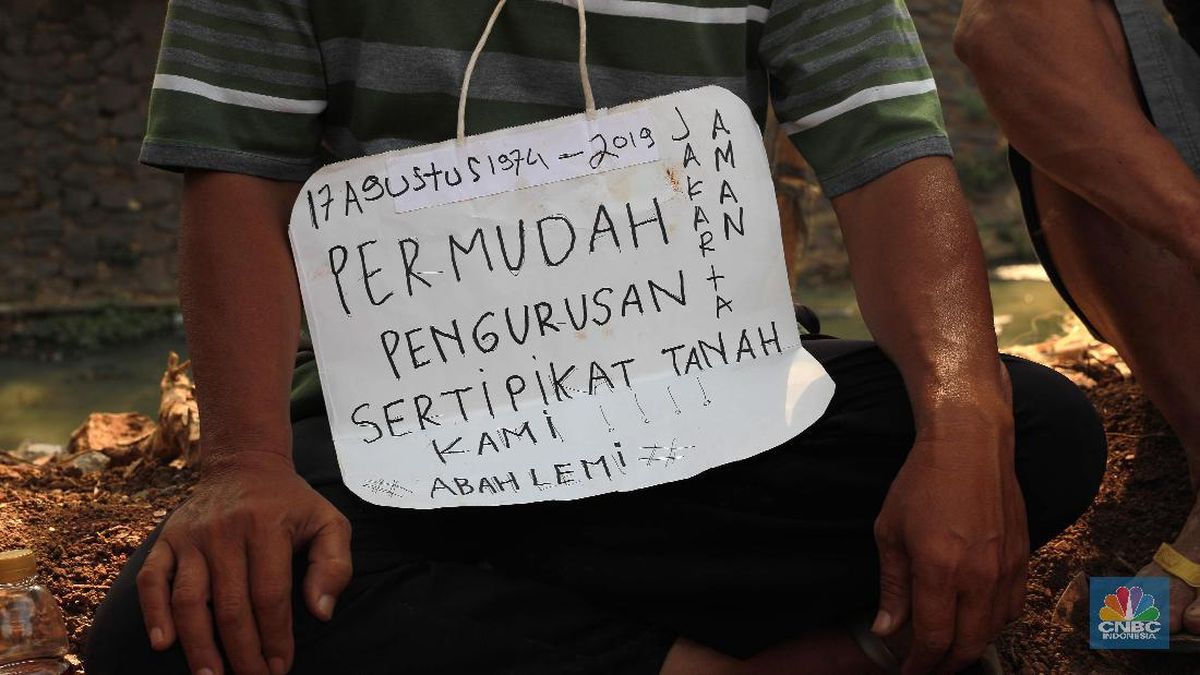 17 AGUSTUS 1974 - 2019
PERMUDAH
PENGURUSAN
SERTIPIKAT TANAH
KAMI ! ! ! !
ABAH LEMI #
JAKARTA
AMAN
CNBC
INDONESIA